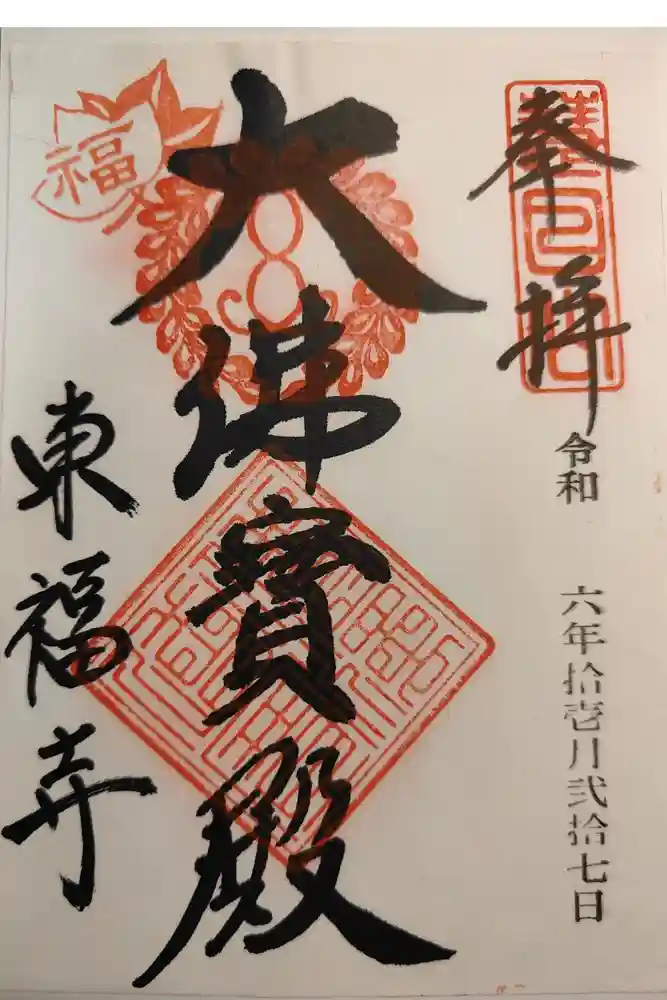 奉拝
令和 六年拾壱月弐拾七日
大佛寳殿
福
東福寺